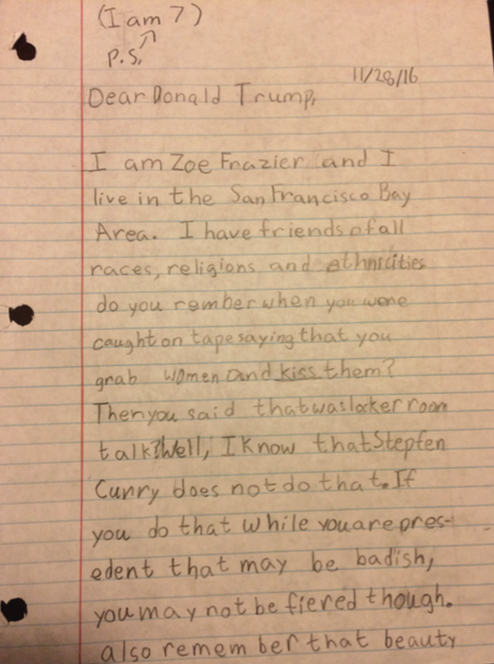 (I am 7)
P.S.
11/28/16
Dear Donald Trump,
I am Zoe Frazier and I
live in the San Francisco Bay
Area. I have friends of all
races, religions and ethnicities
do you rember when you were
caught on tape saying that you
grab women and kiss them?
Then you said that was locker room
talk? Well, I Know that Stepfen
Curry does not do that. If
you do that while you are pres-
edent that may be badish,
you may not be fiered though.
also remember that beauty